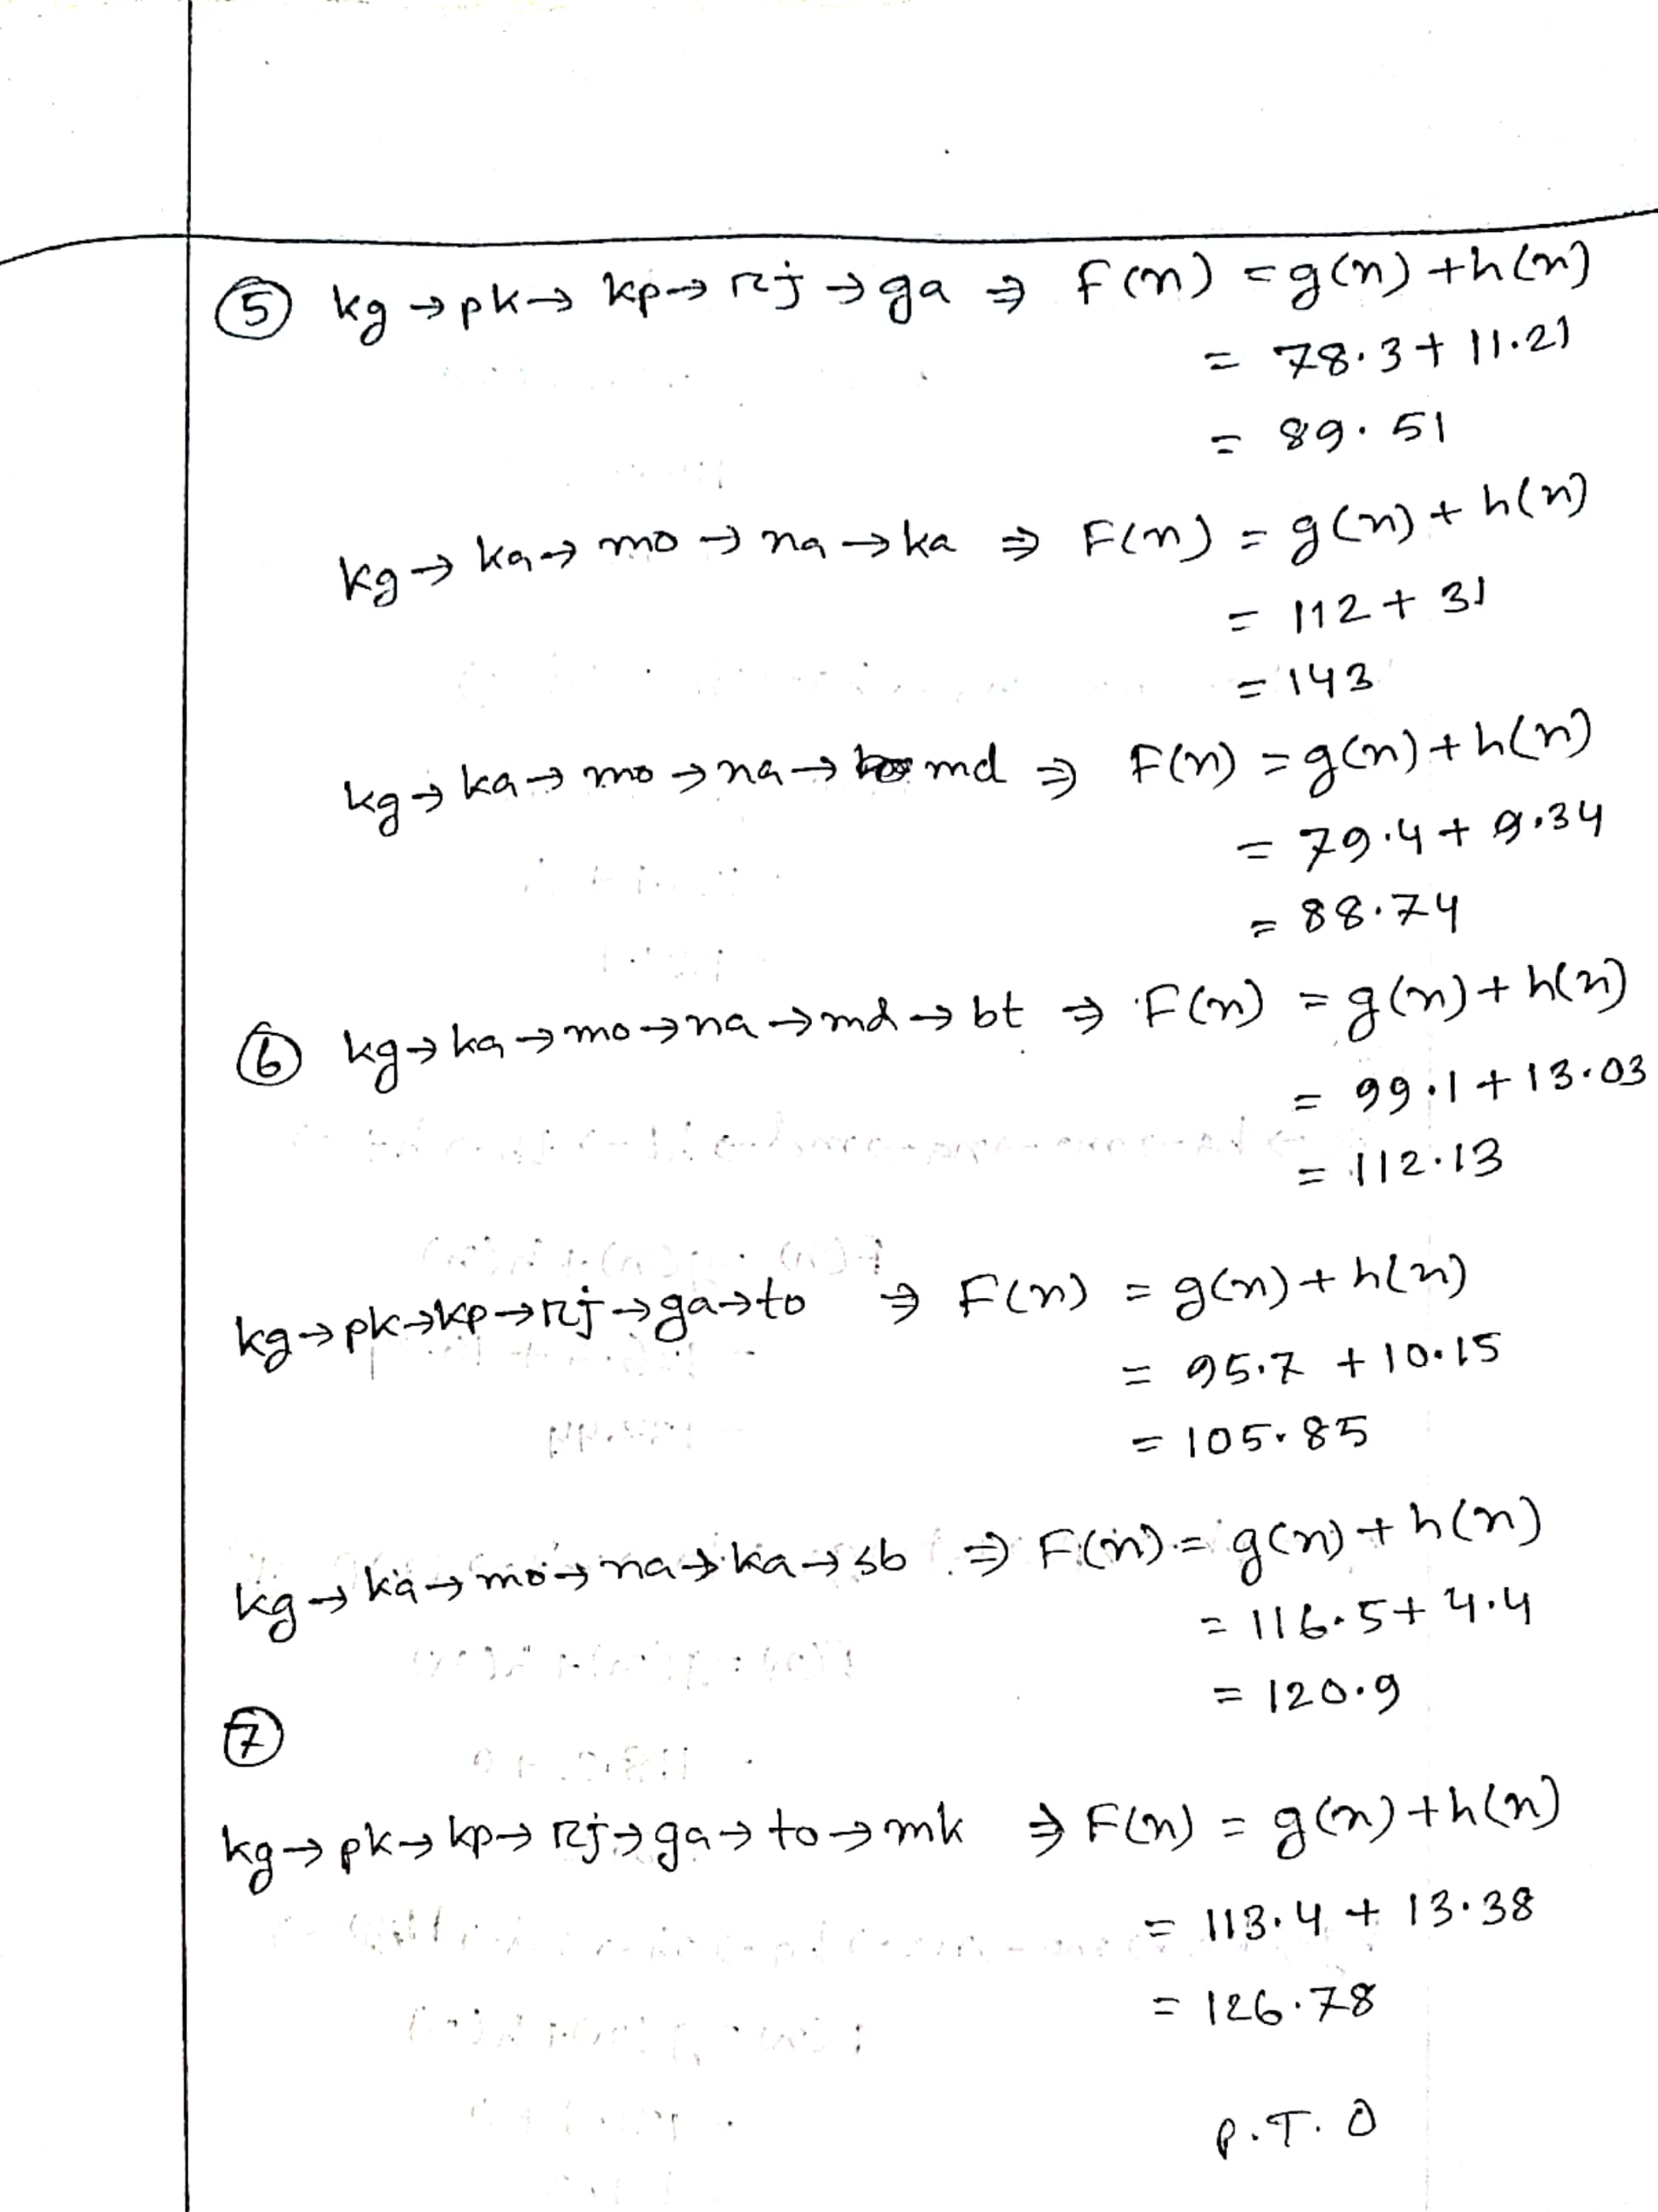 ⑤ kg → pk → kp → Rj → ga ⇒ F(n) = g(n) + h(n)
= 78.3 + 11.21
= 89.51
kg → ka → mo → na → ka ⇒ F(n) = g(n) + h(n)
= 112 + 31
= 143
kg → ka → mo → na → md ⇒ F(n) = g(n) + h(n)
= 79.4 + 9.34
= 88.74
⑥ kg → ka → mo → na → md → bt ⇒ F(n) = g(n) + h(n)
= 99.1 + 13.03
= 112.13
kg → pk → kp → Rj → ga → to ⇒ F(n) = g(n) + h(n)
= 95.7 + 10.15
= 105.85
kg → ka → mo → na → ka → sb ⇒ F(n) = g(n) + h(n)
= 116.5 + 4.4
= 120.9
⑦
kg → pk → kp → Rj → ga → to → mk ⇒ F(n) = g(n) + h(n)
= 113.4 + 13.38
= 126.78
P.T.O